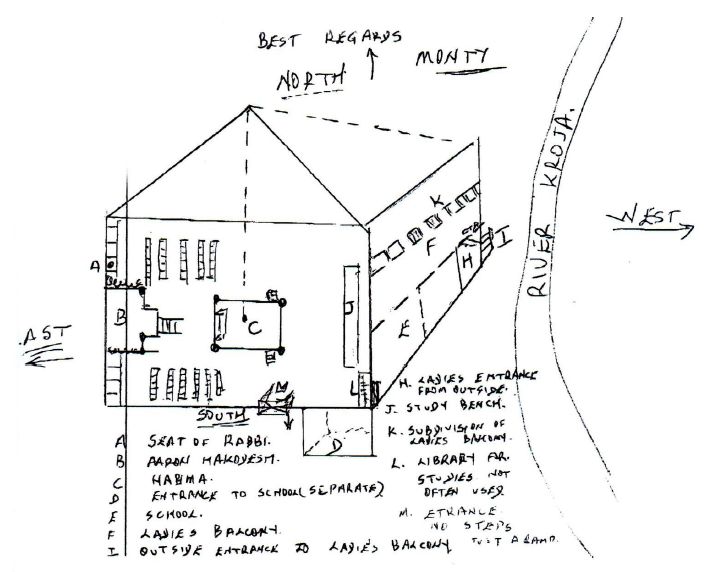 BEST REGARDS
MONTY
NORTH
RIVER KROJA.
WEST
K
F
I
H
A
B
C
J
E
AST
L
M
SOUTH
D
H. LADIES ENTRANCE
FROM OUTSIDE.
J. STUDY BENCH.
K. SUBDIVISION OF
LADIES BALCONY.
L. LIBRARY FOR
STUDIES NOT
OFTEN USED
M. ETRANCE
NO STEPS
JUST A RAMP.
A SEAT OF RABBI.
B AARON HAKODESH.
C HABMA.
D ENTRANCE TO SCHOOL (SEPARATE)
E SCHOOL.
F LADIES BALCONY.
I OUTSIDE ENTRANCE TO LADIES BALCONY